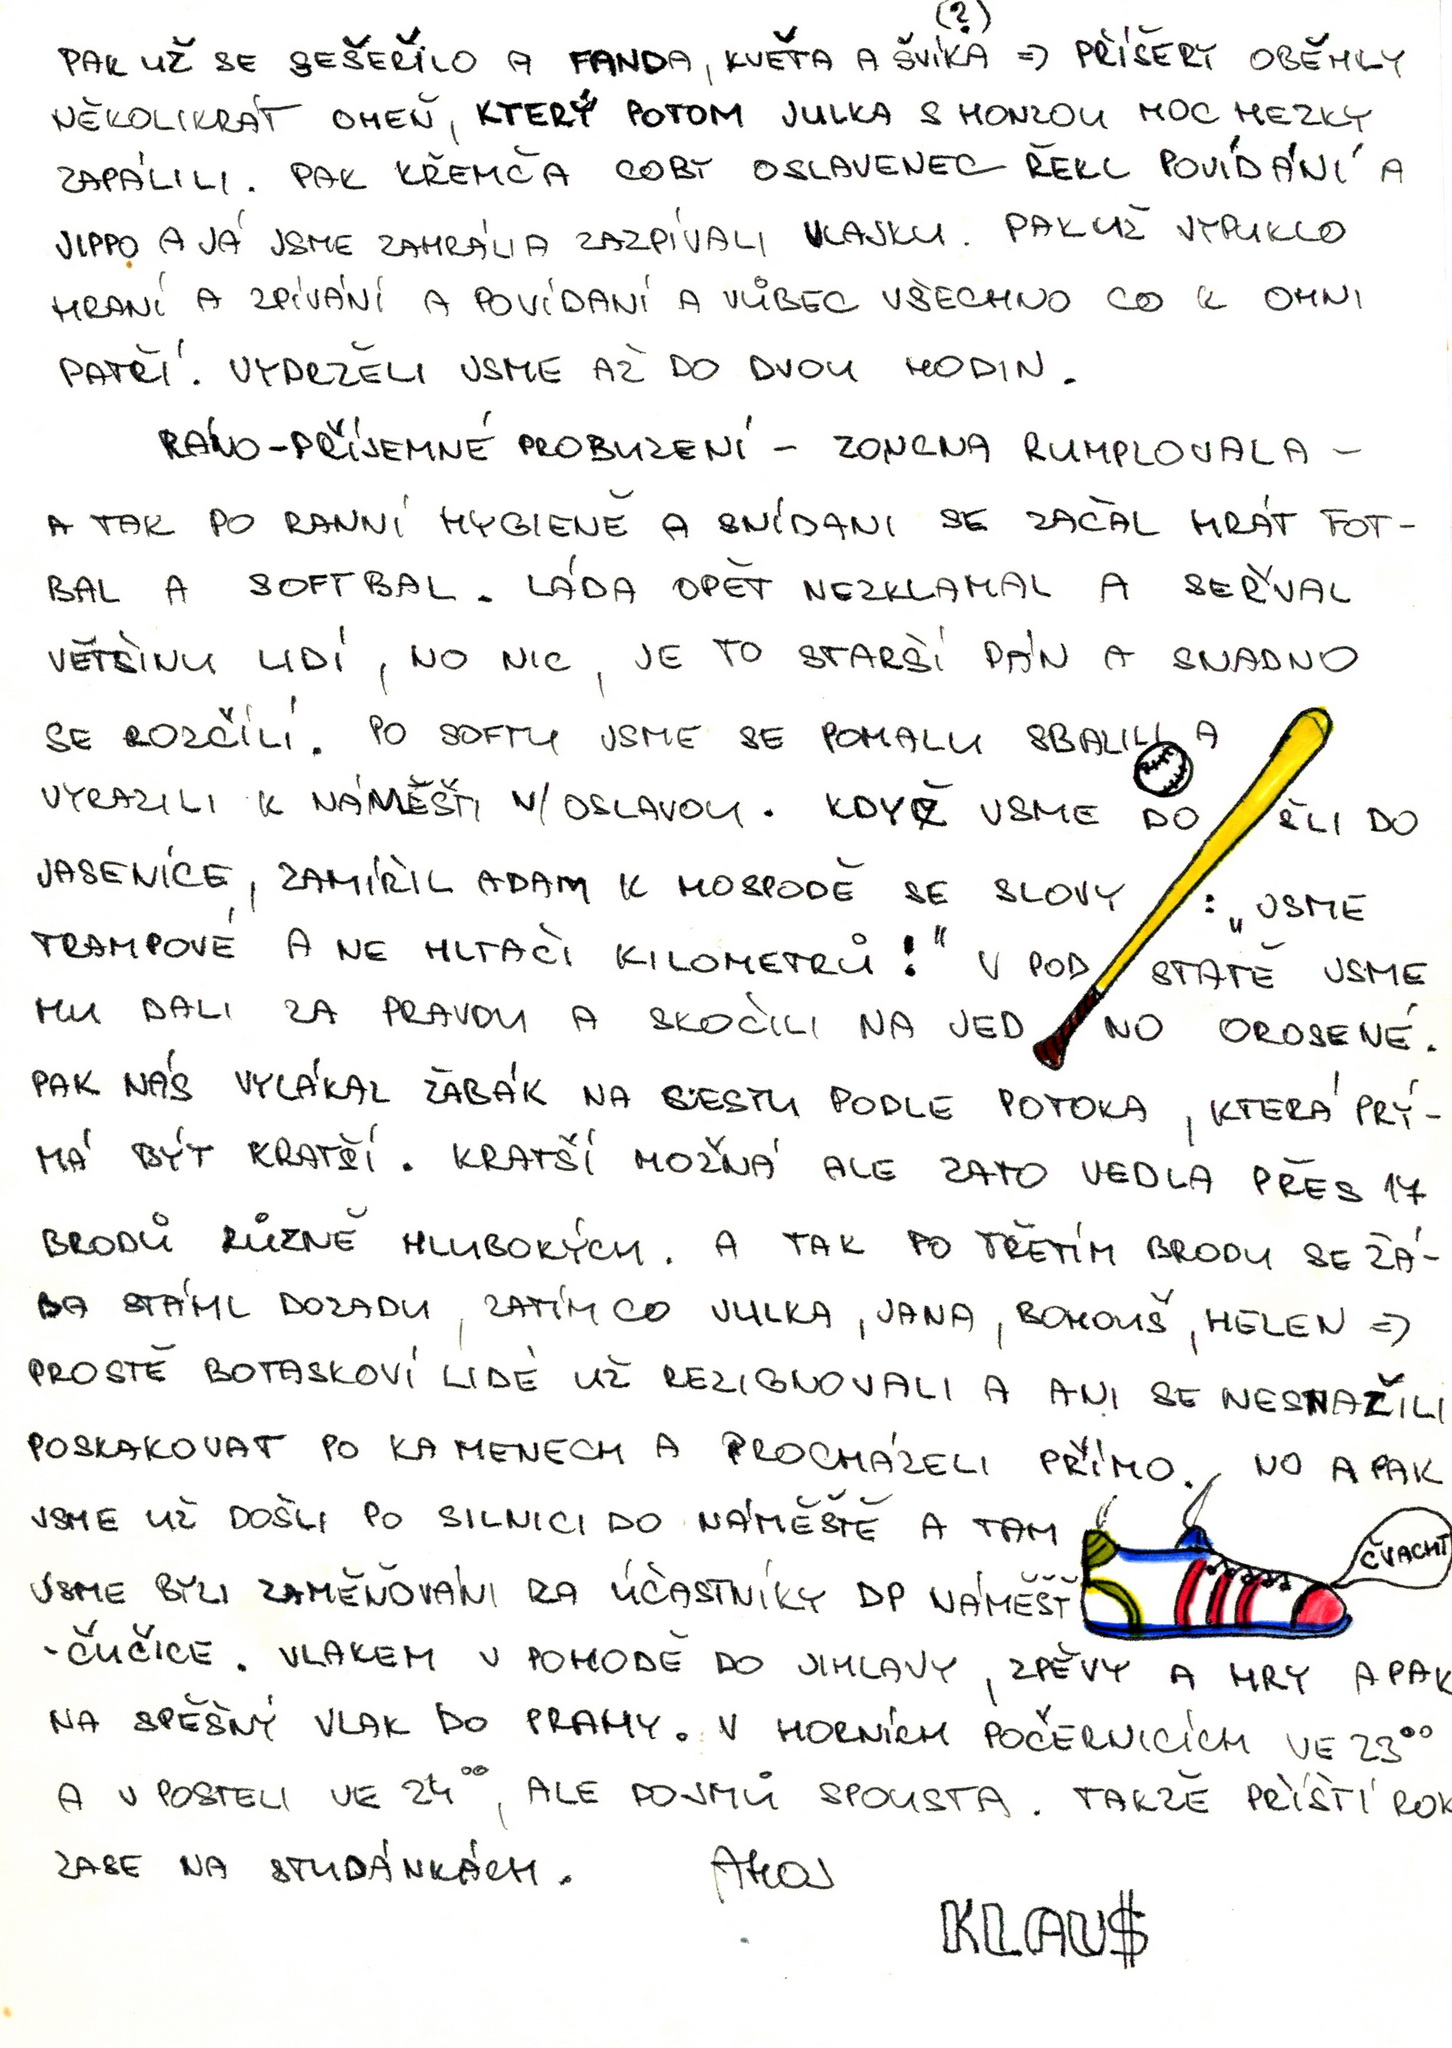 (?)
PAK UŽ SE SEŠEŘILO A FANDA, KVĚTA A ŠVIKA => PŘÍŠERY OBĚHLY
NĚKOLIKRÁT OHEŇ, KTERÝ POTOM JULKA S HONZOU MOC HEZKY
ZAPÁLILI. PAK KŘEMČA COBY OSLAVENEC ŘEKL POVÍDÁNÍ A
JIPPO A JÁ JSME ZAHRÁLI A ZAZPÍVALI VLAJKU. PAK UŽ VYPUKLO
HRANÍ A ZPÍVÁNÍ A POVÍDANÍ A VŮBEC VŠECHNO CO K OHNI
PATŘÍ. VYDRŽELI JSME AŽ DO DVOU HODIN.
RÁNO-PŘÍJEMNÉ PROBUZENÍ - RUMPLOVALA -
A TAK PO RANNÍ HYGIENĚ A SNÍDANI SE ZAČAL HRÁT FOT-
BAL A SOFTBAL. LÁĎA OPĚT NEZKLAMAL A SEŘVAL
VĚTŠINU LIDÍ, NO NIC, JE TO STARŠÍ PÁN A SNADNO
SE ROZČÍLÍ. PO SOFTU JSME SE POMALU SBALILI A
VYRAZILI K NÁMĚŠTI N/OSLAVOU. KDYŽ JSME DO ŠLI DO
JASENICE, ZAMÍŘIL ADAM K HOSPODĚ SE SLOVY : „JSME
TRAMPOVÉ A NE HLTAČI KILOMETRŮ!" V POD STATĚ JSME
MU DALI ZA PRAVDU A SKOČILI NA JED NO OROSENÉ.
PAK NÁS VYLÁKAL ŽABÁK NA CESTU PODLE POTOKA, KTERÁ PRÝ-
MÁ BÝT KRATŠÍ. KRATŠÍ MOŽNÁ ALE ZATO VEDLA PŘES 17
BRODŮ RŮZNĚ HLUBOKÝCH. A TAK PO TŘETÍM BRODU SE ŽÁ-
BA STÁHL DOZADU, ZATÍMCO JULKA, JANA, BOHOUŠ, HELEN =>
PROSTĚ BOTASKOVÍ LIDÉ UŽ REZIGNOVALI A ANI SE NESNAŽILI
POSKAKOVAT PO KAMENECH A PROCHÁZELI PŘÍMO. NO A PAK
JSME UŽ DOŠLI PO SILNICI DO NÁMĚŠTĚ A TAM
ČVACHT
JSME BYLI ZAMĚŇOVÁNI ZA ÚČASTNÍKY DP NÁMĚŠŤ
-ČUČICE. VLAKEM V POHODĚ DO JIHLAVY, ZPĚVY A HRY A PAK
NA SPĚŠNÝ VLAK DO PRAHY. V HORNÍCH POČERNICÍCH VE 23⁰⁰
A V POSTELI VE 24⁰⁰, ALE DOJMŮ SPOUSTA. TAKŽE PŘÍŠTÍ ROK
ZASE NA STUDÁNKÁCH. AHOJ
KLAU$